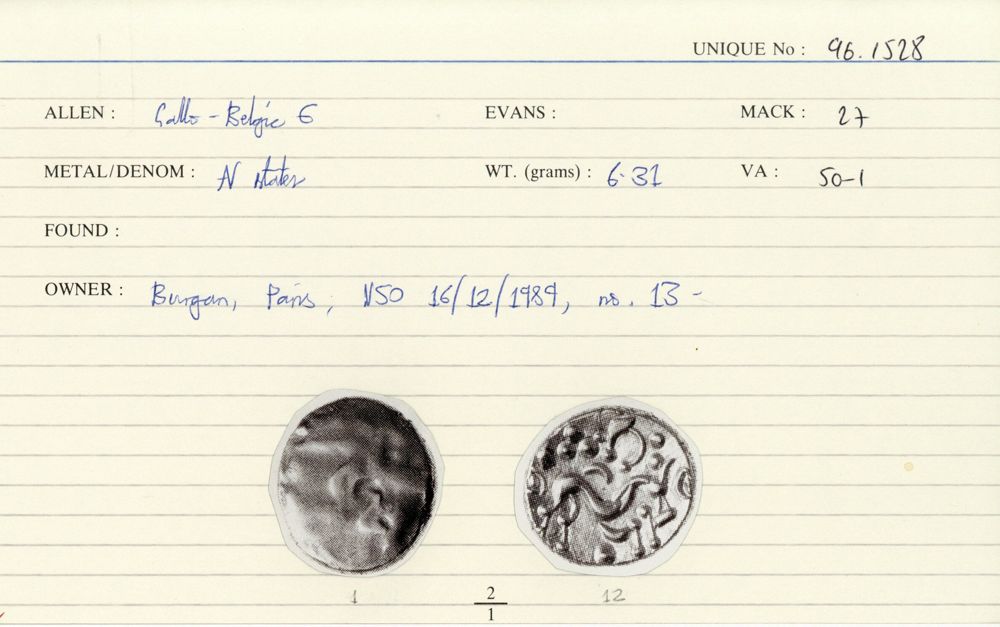 UNIQUE No : 96.1528
ALLEN : Gallo-Belgic E EVANS : MACK : 27
METAL/DENOM : N stater WT. (grams) : 6.31 VA : 50-1
FOUND :
OWNER : Burgan, Paris, VSO 16/12/1989, no. 13 -
1 2/1 12